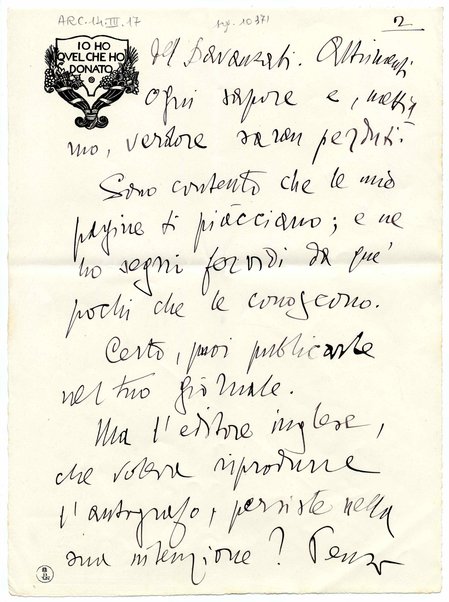 ARC. 14. III. 17
sg. 10371
2
IO HO
QVEL CHE HO
DONATO
del Davanzati. Altrimenti
ogni sapore e, mettia
mo, verdore saran perduti.
Sono contento che le mie
pagine ti piacciano; e ne
ho segni fervidi da que'
pochi che le conoscono.
Certo, puoi publicarle
nel tuo giornale.
Ma l'editore inglese,
che voleva riprodurre
l'autografo, persiste nella
sua intenzione? Penso